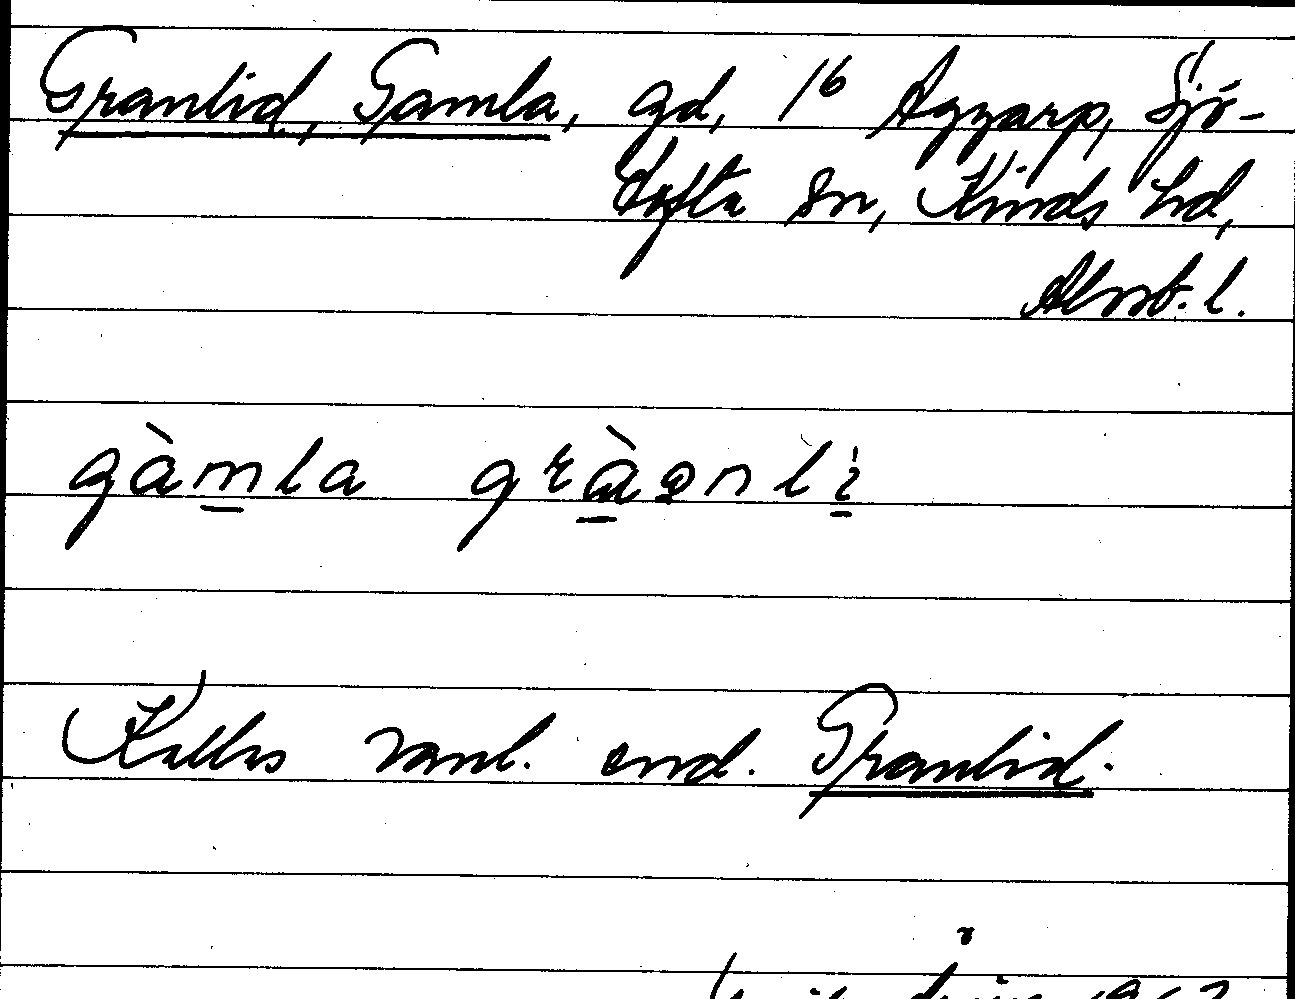 Granlid, Gamla, gd, 1⁶ Aggarp, Sjö-
tofta sn, Kinds hd,
Älvsb. l.
gàmla gràənli
Kallas vanl. end. Granlid.